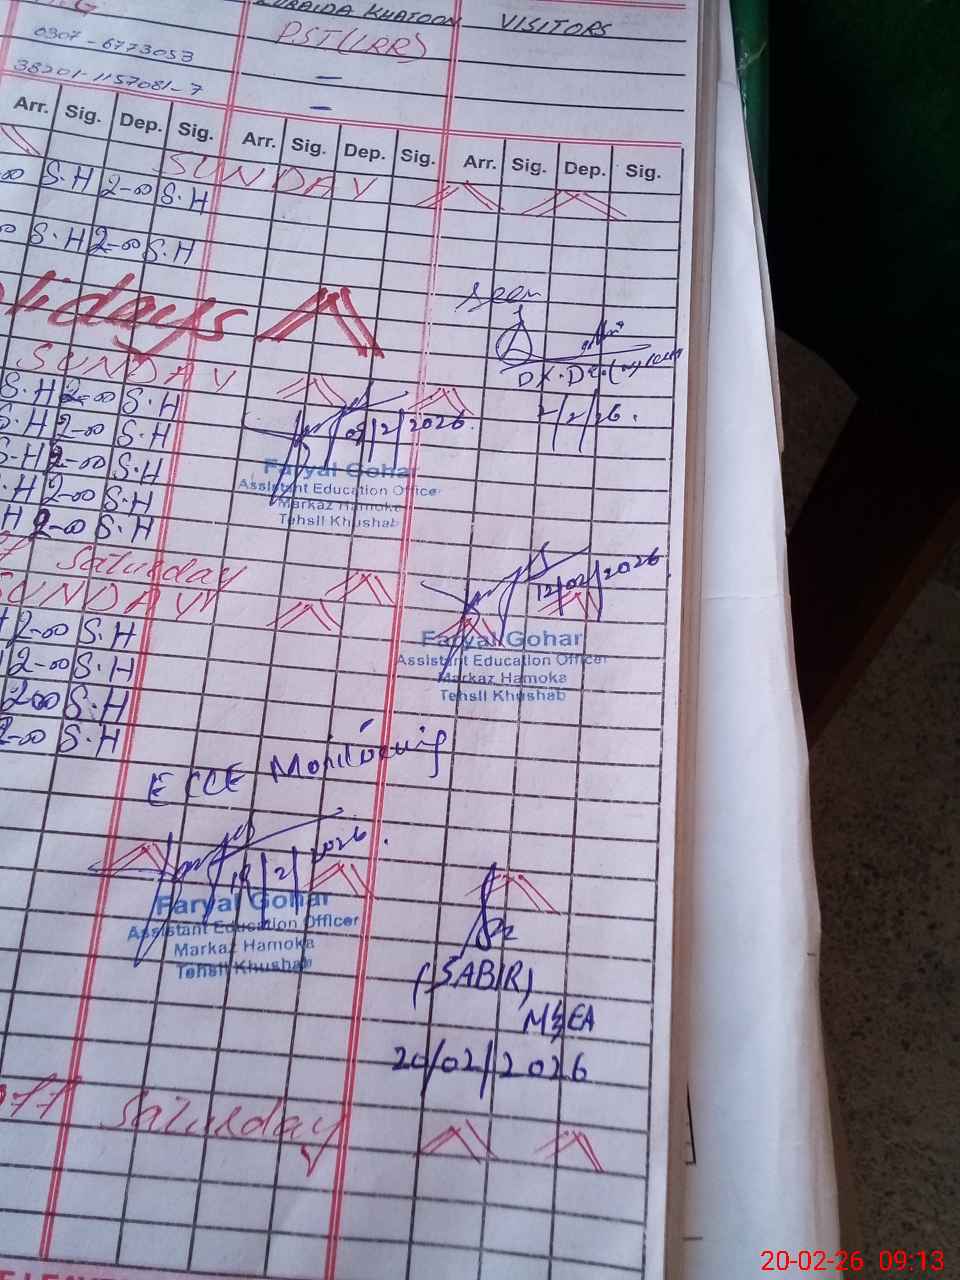 KHATOON VISITORS
P.ST(LRR)
0307-6773053
38201-1157081-7
Arr. Sig. Dep. Sig. Arr. Sig. Dep. Sig. Arr. Sig. Dep. Sig.
SUNDAY
S.H 2-00 S.H
S.H 2-00 S.H
Seen
SUNDAY
S.H 2-00 S.H
2/2/26.
S.H 2-00 S.H
2/2026.
S.H 2-00 S.H
Faryal Gohar
Assistant Education Officer
Markaz Hamoka
Tehsil Khushab
.H 2-00 S.H
H 2-00 S.H
Saturday
SUNDAY
12/02/2026
2-00 S.H
Faryal Gohar
Assistant Education Officer
Markaz Hamoka
Tehsil Khushab
2-00 S.H
200 S.H
2-00 S.H
ECCE Monitoring
2/2026.
Faryal Gohar
Assistant Education Officer
Markaz Hamoka
Tehsil Khushab
(SABIR)
M&EA
20/02/2026
Saturday
20-02-26 09:13